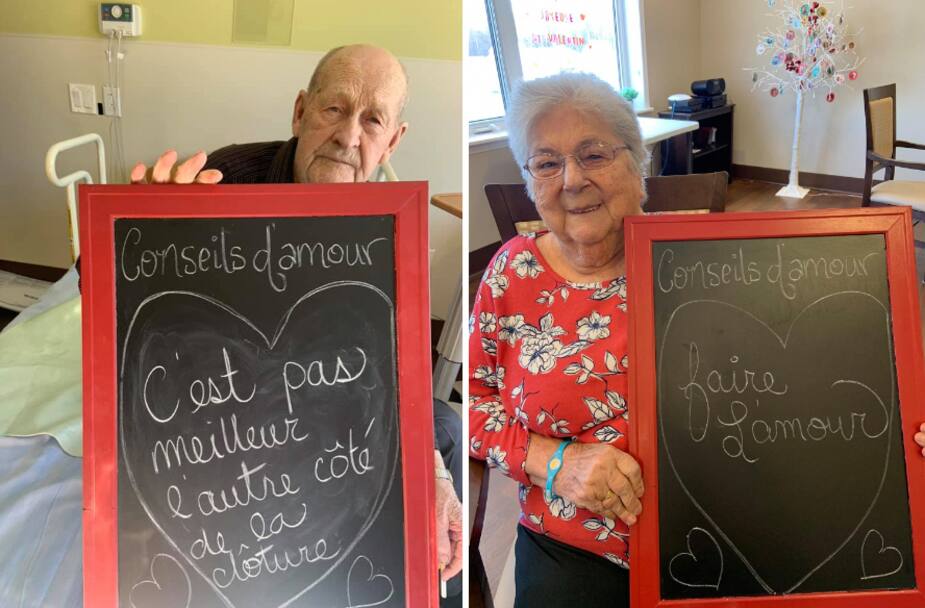 Conseils d'amour
C'est pas
meilleur
l'autre côté
de la
clôture
JOYEUSE
ST VALENTIN
Conseils d'amour
faire
L'amour